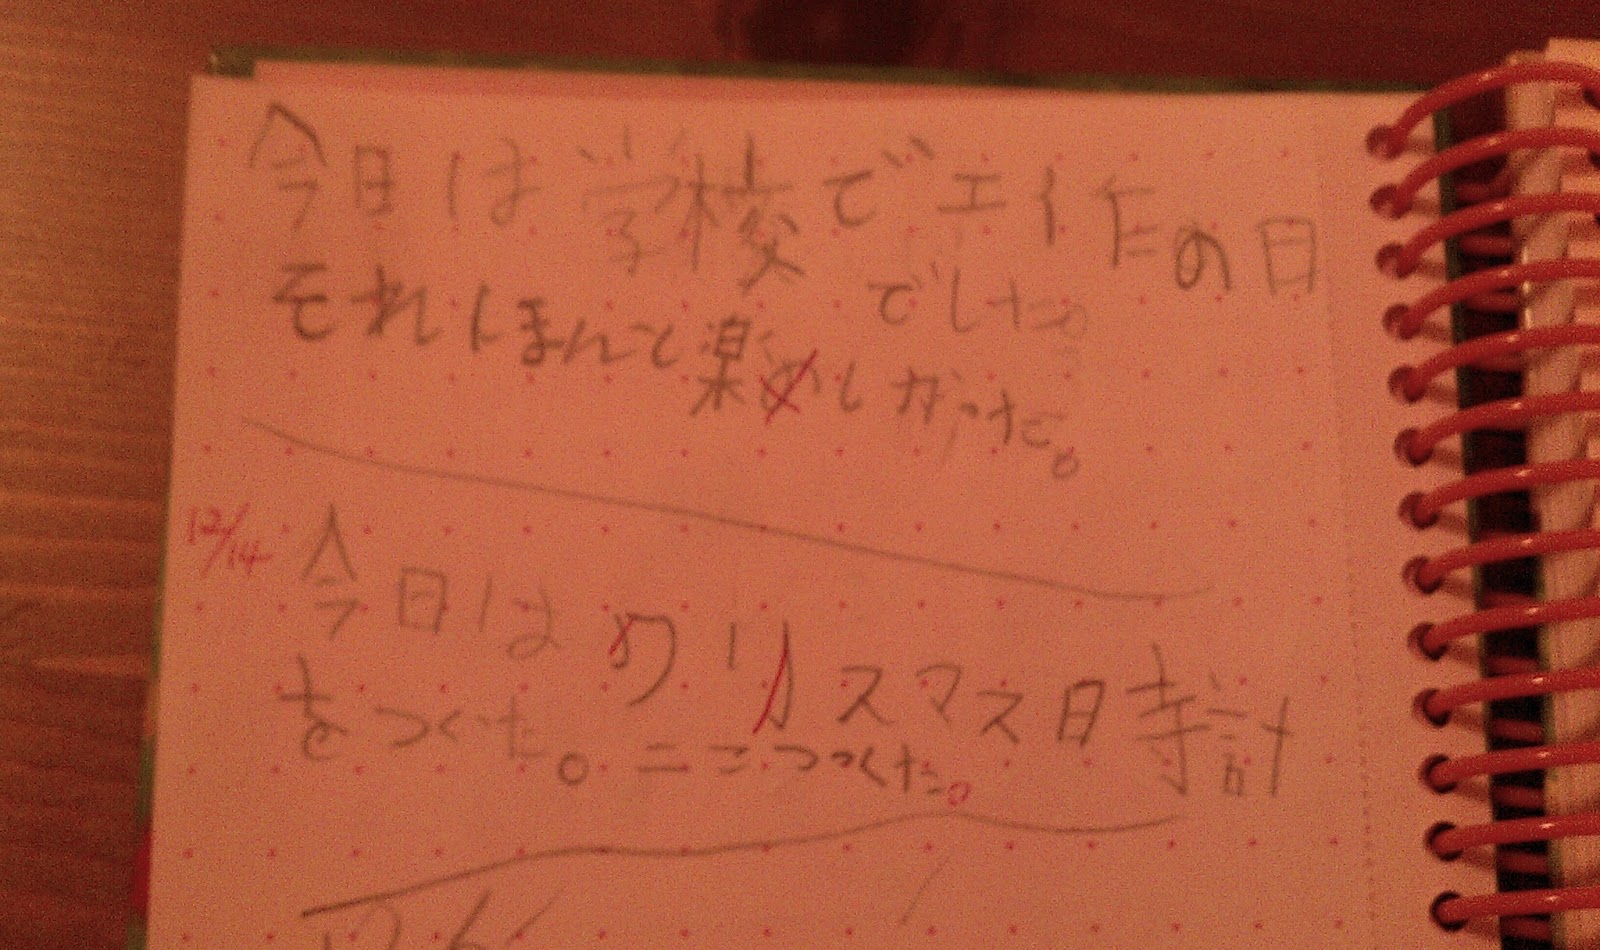 今日は学校で工作の日
でした。
それはほんと楽しかった。
12/14
今日はクリスマス時計
をつくた。二こつつくた。